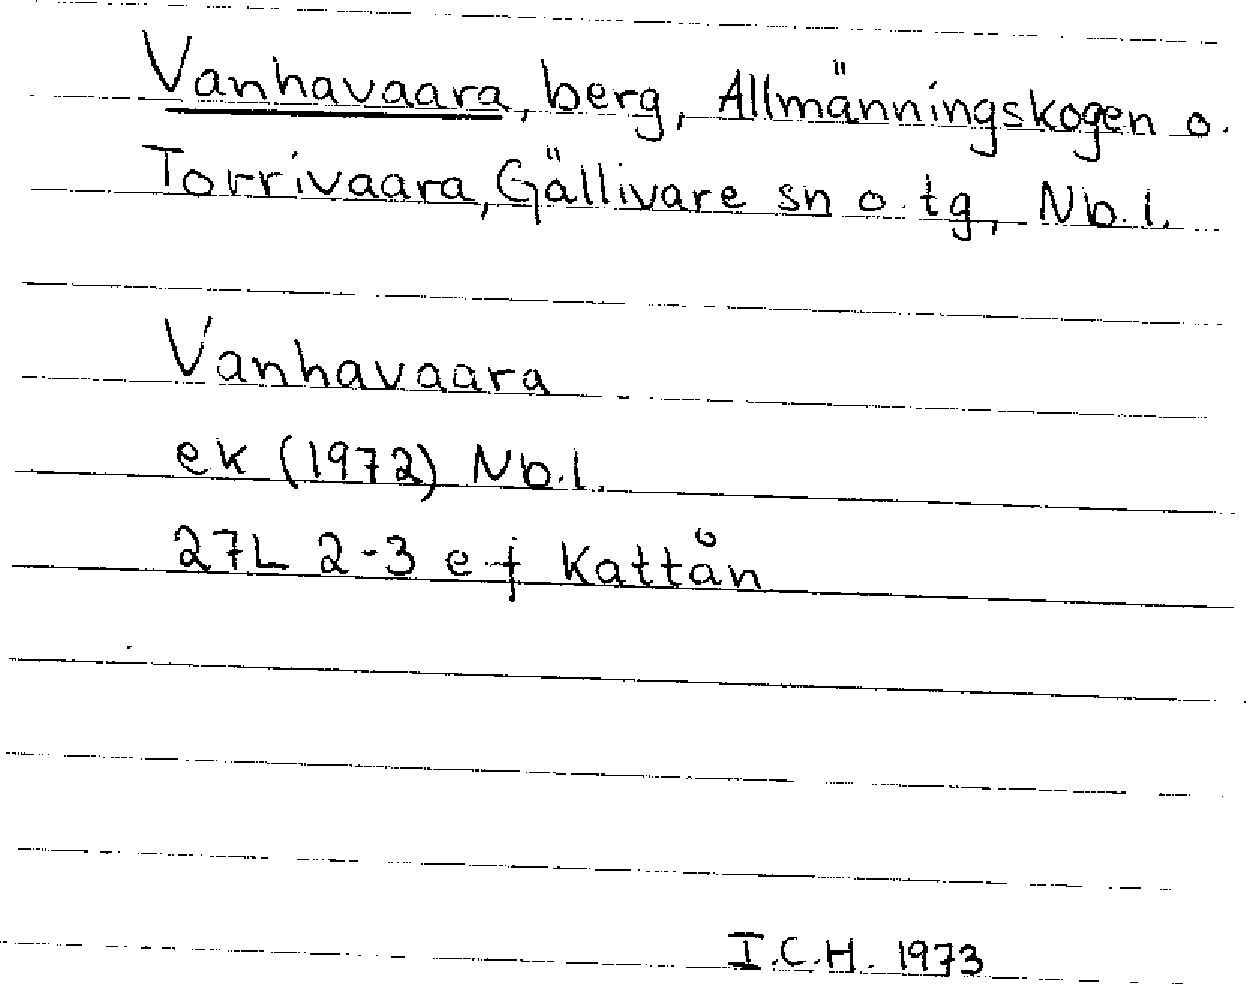 Vanhavaara, berg, Allmänningskogen o.
Torrivaara, Gällivare sn o. tg, Nb.l.
Vanhavaara
ek (1972) Nb.l.
27L 2-3 e-f Kattån
I.C.H. 1973